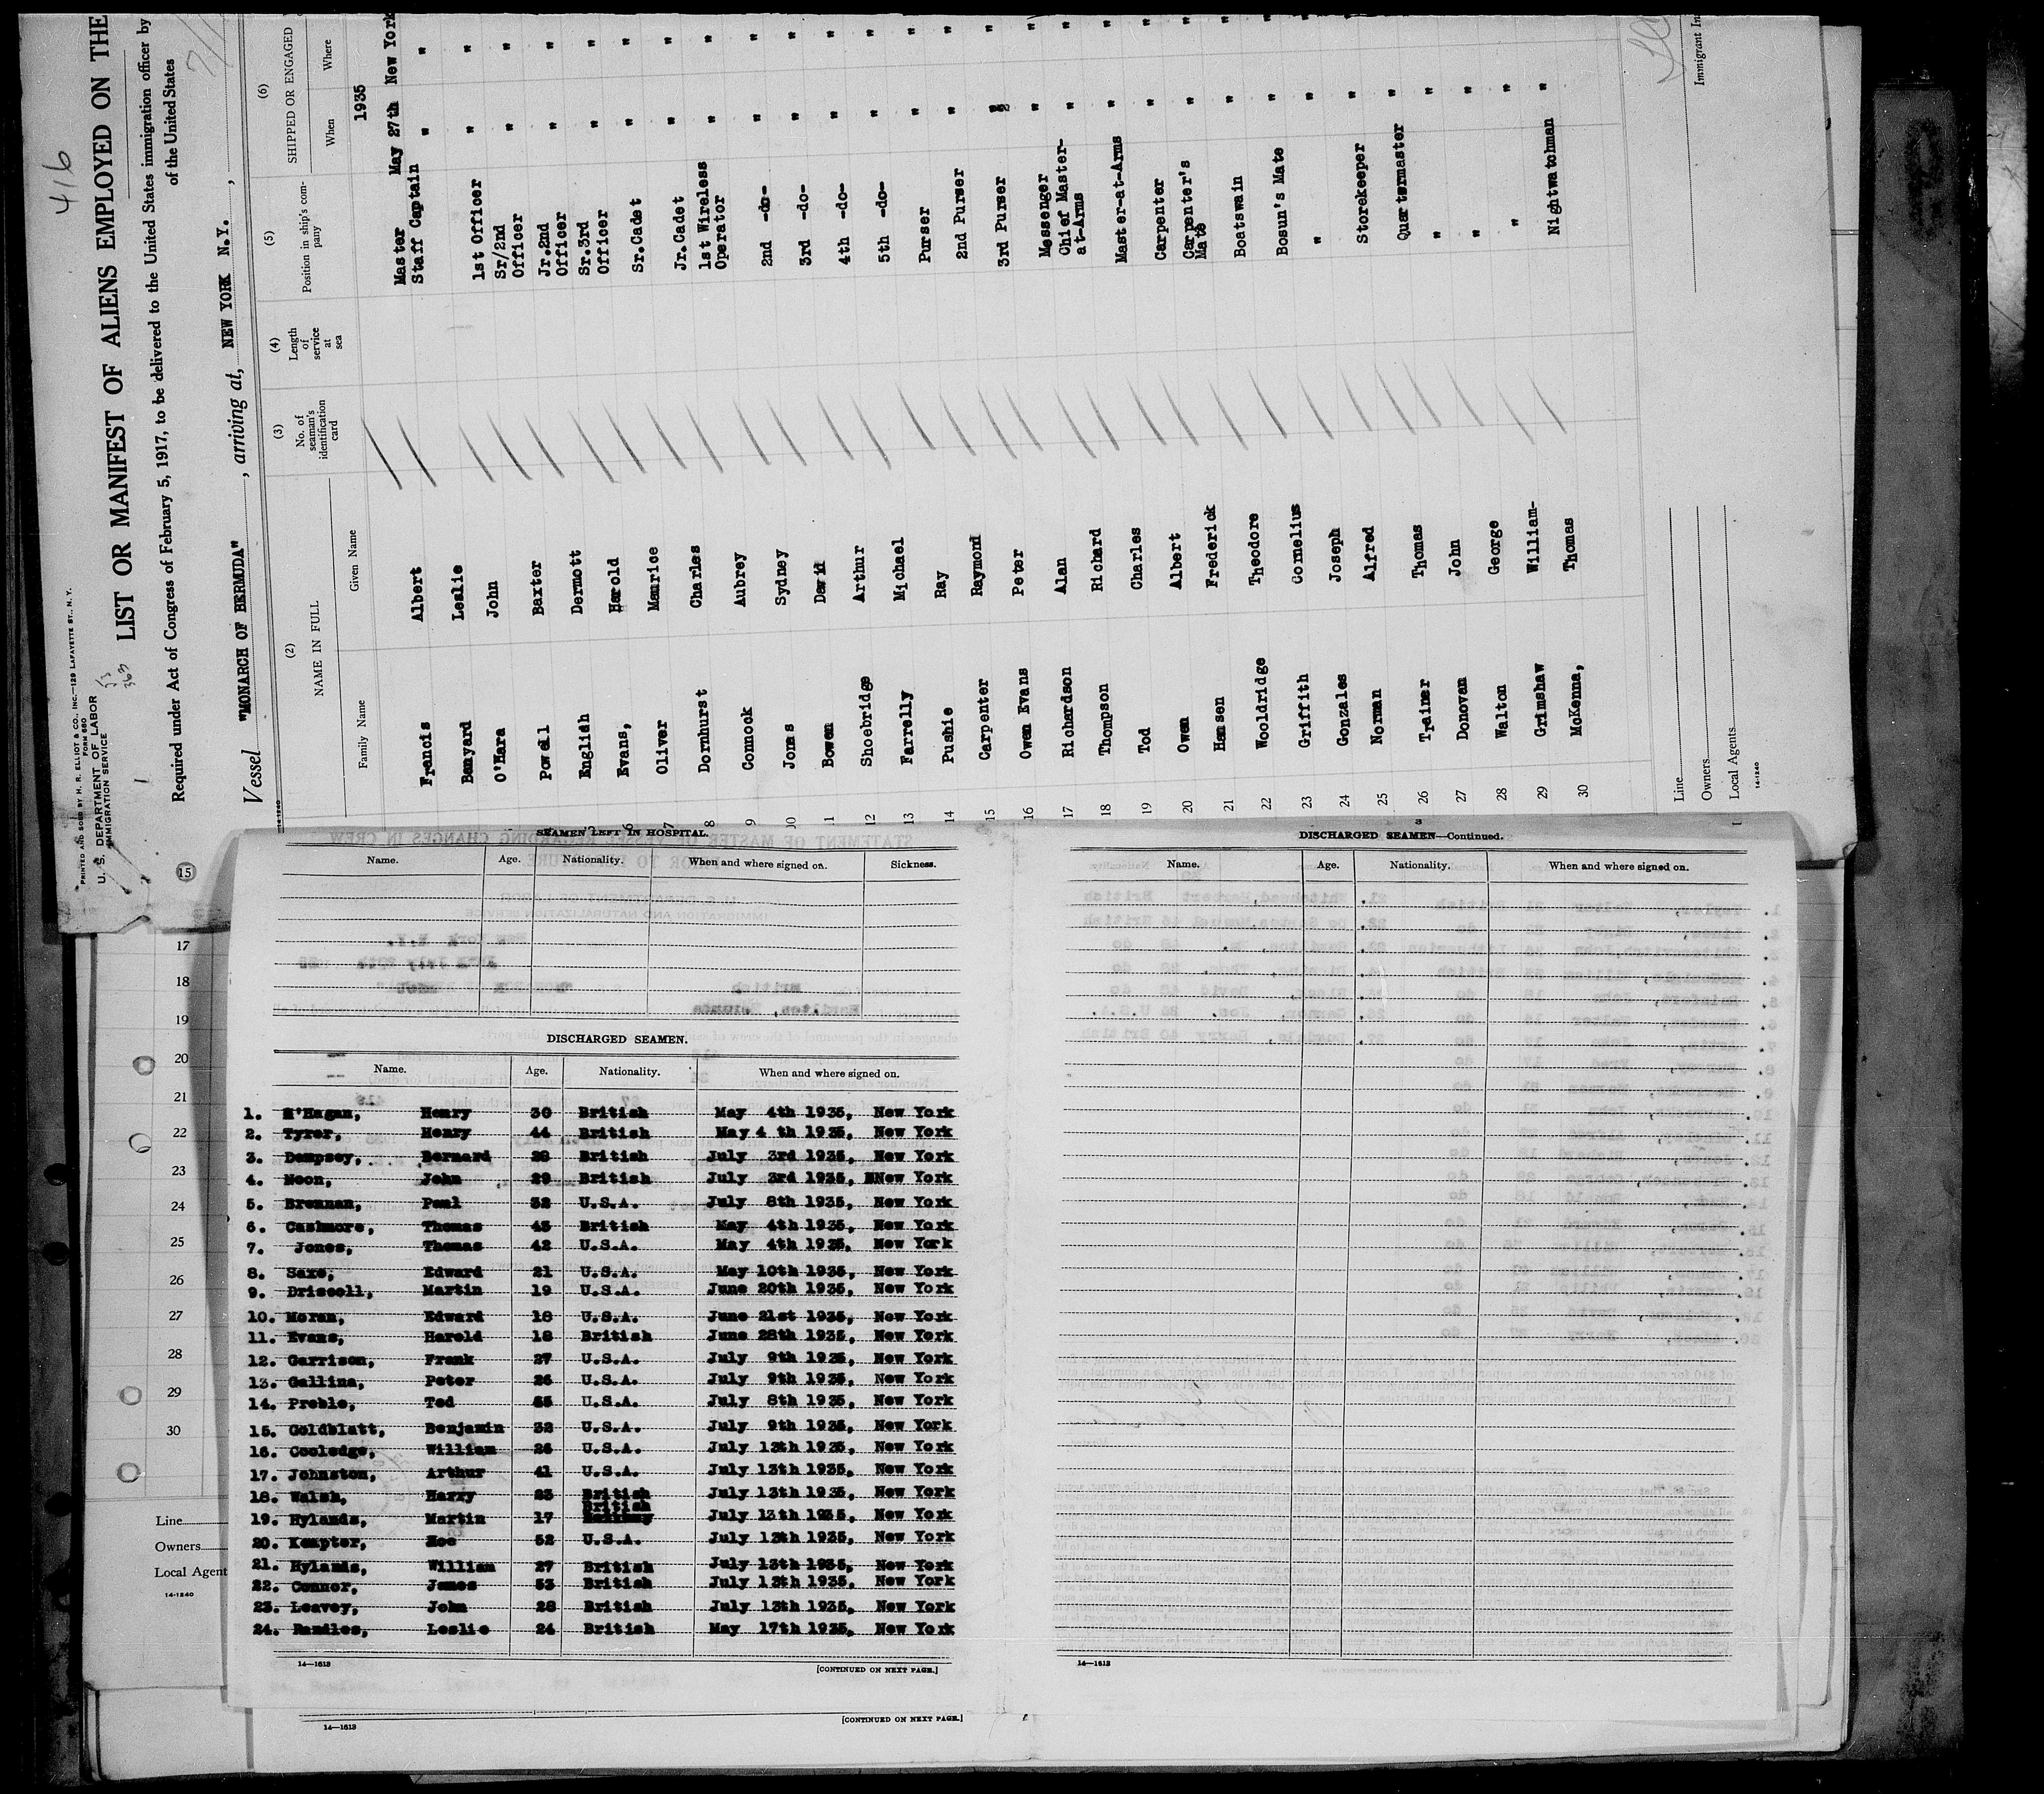 416
PRINTED AND SOLD BY H. R. ELLIOT & CO., INC.—129 LAFAYETTE ST., N.Y.
FORM 680
U. S. DEPARTMENT OF LABOR
IMMIGRATION SERVICE
LIST OR MANIFEST OF ALIENS EMPLOYED ON THE
Required under Act of Congress of February 5, 1917, to be delivered to the United States immigration officer by
of the United States
Vessel "MONARCH OF BERMUDA", arriving at, NEW YORK N.Y.,
(2) (3) (4) (5) (6)
NAME IN FULL No. of seaman's identification card Length of service at sea Position in ship's company SHIPPED OR ENGAGED
Family Name Given Name When Where
1935
Francis Albert Master May 27th New York
Banyard Leslie Staff Captain " "
O'Hara John 1st Officer " "
Powell Baxter Sr/2nd Officer " "
English Dermott Jr.2nd Officer " "
6 Evans, Harold Sr.3rd Officer " "
7 Oliver Maurice Sr.Cadet " "
8 Dornhurst Charles Jr.Cadet " "
9 Connock Aubrey 1st Wireless Operator " "
10 Jones Sydney 2nd -do- " "
11 Bowen David 3rd -do- " "
12 Shoebridge Arthur 4th -do- " "
13 Farrelly Michael 5th -do- " "
14 Pushie Ray Purser " "
15 Carpenter Raymond 2nd Purser " "
16 Owen Evans Peter 3rd Purser " "
17 Richardson Alan Messenger " "
18 Thompson Richard Chief Master-at-Arms " "
19 Tod Charles Master-at-Arms " "
20 Owen Albert Carpenter " "
21 Hansen Frederick Carpenter's Mate " "
22 Wooldridge Theodore Boatswain " "
23 Griffith Cornelius Bosun's Mate " "
24 Gonzales Joseph " " "
25 Norman Alfred Storekeeper " "
26 Trainer Thomas Quartermaster "
27 Donovan John " "
28 Walton George " "
29 Grimshaw William- " "
30 McKenna, Thomas Nightwatchman "
Line
Owners
Local Agents
14-1240
Immigrant In
15
17
18
19
20
21
22
23
24
25
26
27
28
29
30
Line
Owners
Local Agent
14-1240
SEAMEN LEFT IN HOSPITAL.
Name. Age. Nationality. When and where signed on. Sickness.
DISCHARGED SEAMEN.
Name. Age. Nationality. When and where signed on.
1. O'Hagan, Henry 30 British May 4th 1935, New York
2. Tyrer, Henry 44 British May 4 th 1935, New York
3. Dempsey, Bernard 28 British July 3rd 1935, New York
4. Moon, John 29 British July 3rd 1935, New York
5. Brennan, Paul 32 U.S.A. July 8th 1935, New York
6. Cashmore, Thomas 43 British May 4th 1935, New York
7. Jones, Thomas 42 U.S.A. May 4th 1935, New York
8. Saxe, Edward 21 U.S.A. May 10th 1935, New York
9. Driscoll, Martin 19 U.S.A. June 20th 1935, New York
10. Moran, Edward 18 U.S.A. June 21st 1935, New York
11. Evans, Harold 18 British June 28th 1935, New York
12. Garrison, Frank 27 U.S.A. July 9th 1935, New York
13. Gallina, Peter 26 U.S.A. July 9th 1935, New York
14. Preble, Ted U.S.A. July 8th 1935, New York
15. Goldblatt, Benjamin 32 U.S.A. July 9th 1935, New York
16. Cooledge, William 26 U.S.A. July 13th 1935, New York
17. Johnston, Arthur 41 U.S.A. July 13th 1935, New York
18. Walsh, Harry 23 British July 13th 1935, New York
19. Hylands, Martin 17 British July 13th 1935, New York
20. Kempter, 52 U.S.A. July 13th 1935, New York
21. Hylands, William 27 British July 13th 1935, New York
22. Connor, James 53 British July 13th 1935, New York
23. Leavey, John 28 British July 13th 1935, New York
24. Randles, Leslie 24 British May 17th 1935, New York
14—1613 [CONTINUED ON NEXT PAGE.]
14—1613 [CONTINUED ON NEXT PAGE.]
3
DISCHARGED SEAMEN—Continued.
Name. Age. Nationality. When and where signed on.
14—1613